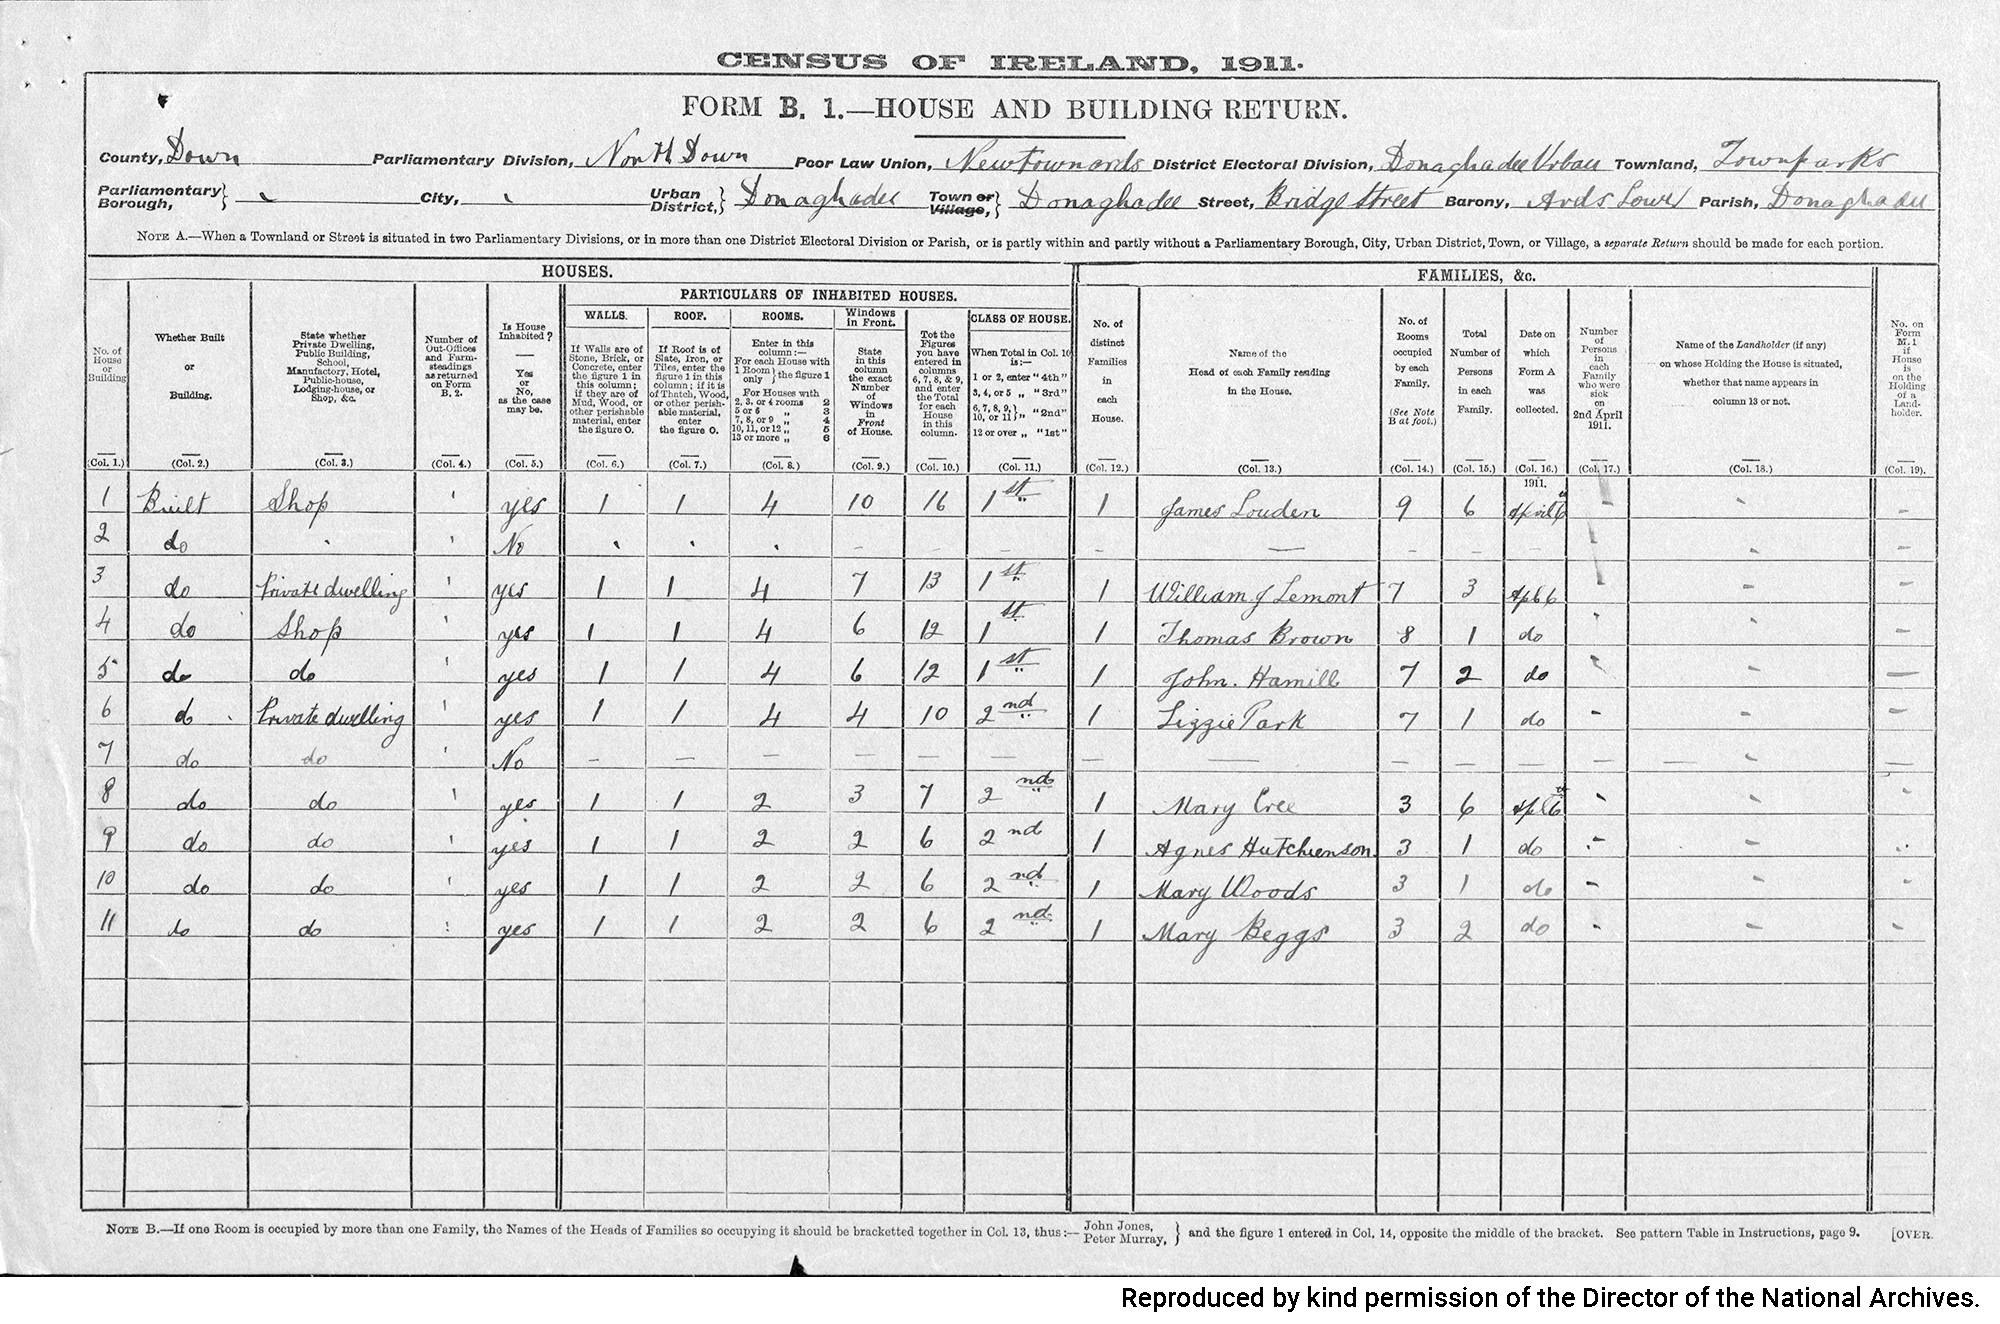 CENSUS OF IRELAND, 1911.
FORM B. 1.—HOUSE AND BUILDING RETURN.
County, Down Parliamentary Division, North Down Poor Law Union, Newtownards District Electoral Division, Donaghadee Urban Townland, Townparks
Parliamentary Borough, City, Urban District, Donaghadee Town or Village, Donaghadee Street, Bridge Street Barony, Ards Lower Parish, Donaghadee
NOTE A.—When a Townland or Street is situated in two Parliamentary Divisions, or in more than one District Electoral Division or Parish, or is partly within and partly without a Parliamentary Borough, City, Urban District, Town, or Village, a separate Return should be made for each portion.
HOUSES. FAMILIES, &c.
PARTICULARS OF INHABITED HOUSES.
WALLS. ROOF. ROOMS. Windows in Front. CLASS OF HOUSE.
No. of House or Building
Whether Built or Building.
State whether Private Dwelling, Public Building, School, Manufactory, Hotel, Public-house, Lodging-house, or Shop, &c.
Number of Out-Offices and Farm-steadings as returned on Form B. 2.
Is House Inhabited? — Yes or No, as the case may be.
If Walls are of Stone, Brick, or Concrete, enter the figure 1 in this column; if they are of Mud, Wood, or other perishable material, enter the figure 0.
If Roof is of Slate, Iron, or Tiles, enter the figure 1 in this column; if it is of Thatch, Wood, or other perishable material, enter the figure 0.
Enter in this column:— For each House with 1 Room only } the figure 1
For Houses with
2, 3, or 4 rooms 2
5 or 6 „ 3
7, 8, or 9 „ 4
10, 11, or 12 „ 5
13 or more „ 6
State in this column the exact Number of Windows in Front of House.
Tot the Figures you have entered in columns 6, 7, 8, & 9, and enter the Total for each House in this column.
When Total in Col. 10 is:—
1 or 2, enter "4th"
3, 4, or 5 „ "3rd"
6, 7, 8, 9, 10, or 11 } „ "2nd"
12 or over „ "1st"
No. of distinct Families in each House.
Name of the Head of each Family residing in the House.
No. of Rooms occupied by each Family. (See Note B at foot.)
Total Number of Persons in each Family.
Date on which Form A was collected.
Number of Persons in each Family who were sick on 2nd April 1911.
Name of the Landholder (if any) on whose Holding the House is situated, whether that name appears in column 13 or not.
No. on Form M. 1 if House is on the Holding of a Landholder.
(Col. 1.) (Col. 2.) (Col. 3.) (Col. 4.) (Col. 5.) (Col. 6.) (Col. 7.) (Col. 8.) (Col. 9.) (Col. 10.) (Col. 11.) (Col. 12.) (Col. 13.) (Col. 14.) (Col. 15.) (Col. 16.) (Col. 17.) (Col. 18.) (Col. 19).
1911.
1 Built Shop yes 1 1 4 10 16 1st 1 James Louden 9 6 April 6th -
2 do No - - - - - - - - -
3 do Private dwelling yes 1 1 4 7 13 1st 1 William J Lemont 7 3 Apl 6 - -
4 do Shop yes 1 1 4 6 12 1st 1 Thomas Brown 8 1 do - -
5 do do yes 1 1 4 6 12 1st 1 John Hamill 7 2 do - -
6 do Private dwelling yes 1 1 4 4 10 2nd 1 Lizzie Park 7 1 do - - -
7 do do No — — — — — — — — — — — — —
8 do do yes 1 1 2 3 7 2nd 1 Mary Cree 3 6 Apl 6th
9 do do yes 1 1 2 2 6 2nd 1 Agnes Hutchienson 3 1 do -
10 do do yes 1 1 2 2 6 2nd 1 Mary Woods 3 1 do -
11 do do yes 1 1 2 2 6 2nd 1 Mary Beggs 3 2 do -
NOTE B.—If one Room is occupied by more than one Family, the Names of the Heads of Families so occupying it should be bracketted together in Col. 13, thus:— John Jones, Peter Murray, } and the figure 1 entered in Col. 14, opposite the middle of the bracket. See pattern Table in Instructions, page 9. [OVER.
Reproduced by kind permission of the Director of the National Archives.